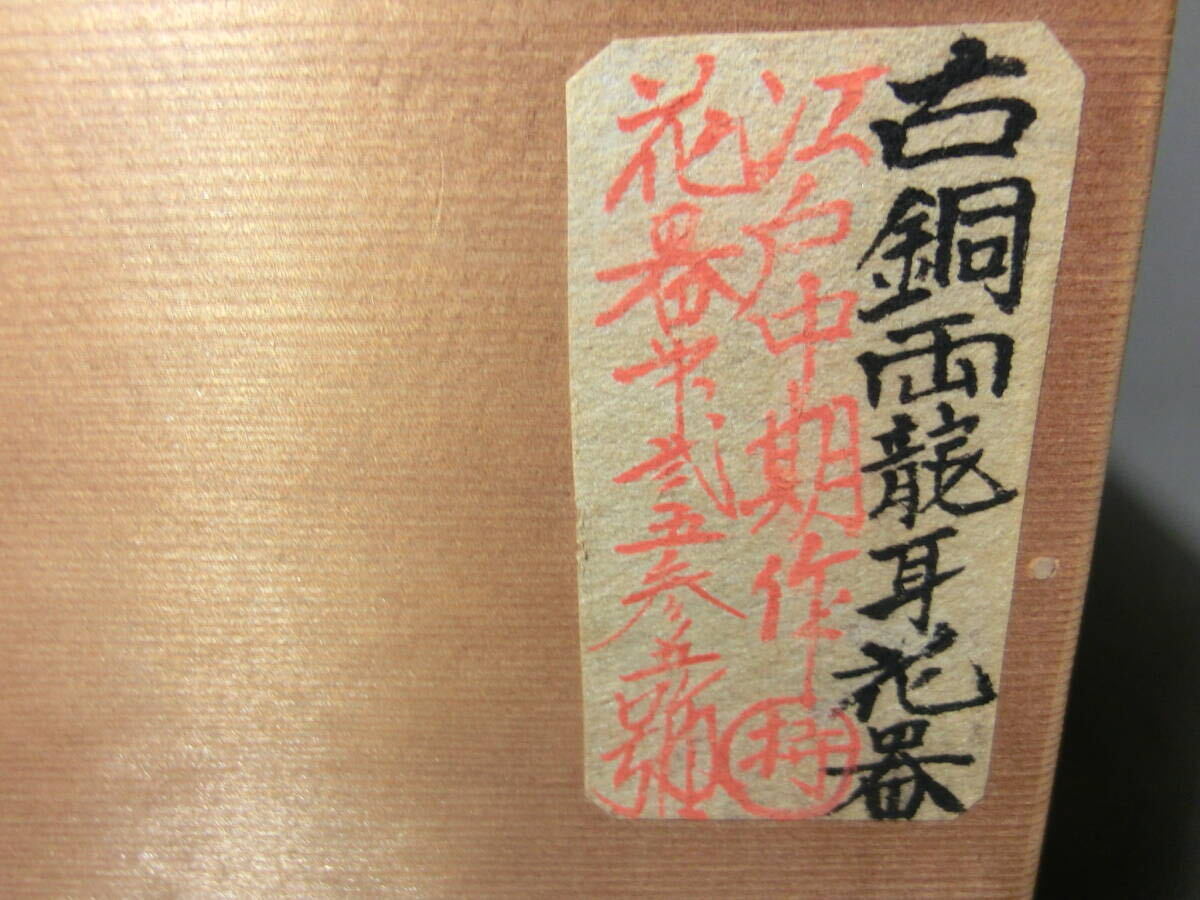 古銅両龍耳花器
江戸中期作
花器第弐五参五號